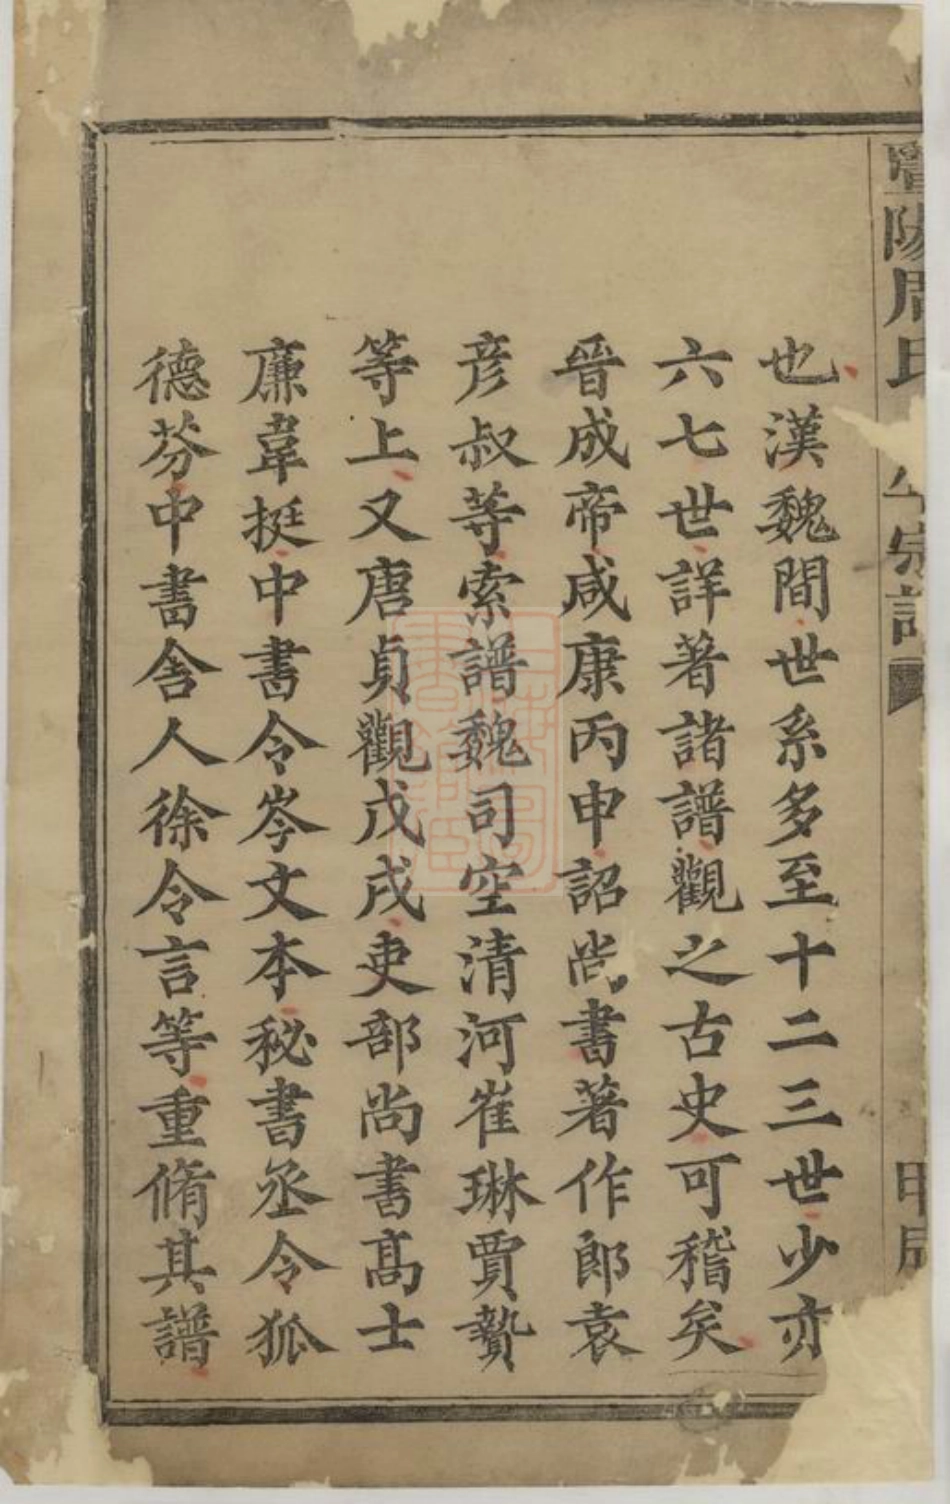 暨陽周氏宗譜
甲戌
也漢魏間世系多至十二三世少亦
六七世詳著諸譜觀之古史可稽矣
晉成帝咸康丙申詔尚書著作郎袁
彦叔等索譜魏司空清河崔琳賈贄
等上又唐貞觀戊戌吏部尚書髙士
廉韋挺中書令岑文本秘書丞令狐
德芬中書舍人徐令言等重脩其譜